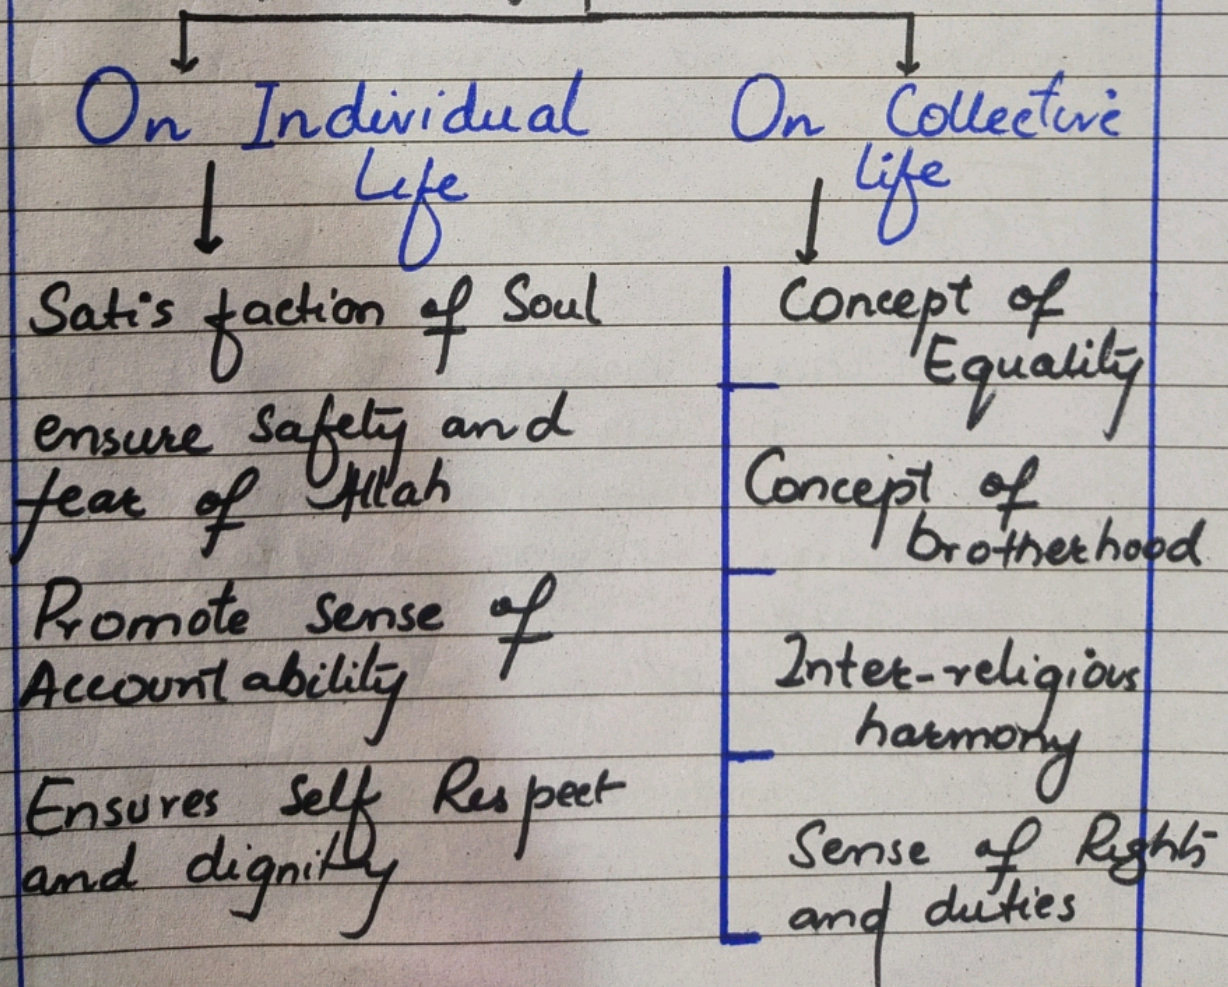 On Individual
Life
Satisfaction of Soul
ensure safety and
fear of Allah
Promote sense of
Accountability
Ensures Self Respect
and dignity
On Collective
life
Concept of
Equality
Concept of
brotherhood
Inter-religious
harmony
Sense of Rights
and duties